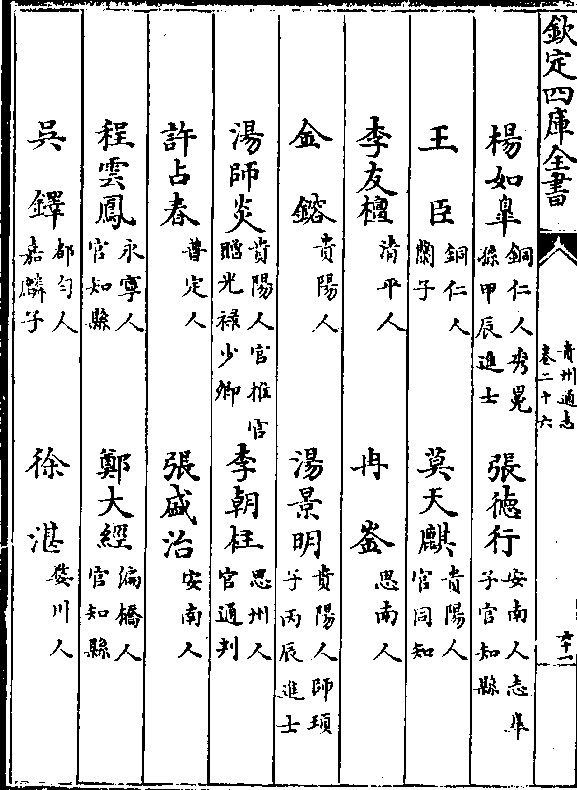 欽定四庫全書
貴州通志
卷二十六
六十一
楊如臯 銅仁人秀冕孫甲辰進士 張德行 安南人志臯子官知縣
王臣 銅仁人 子 莫天麒 貴陽人官同知
李友檀 清平人 冉崟 思南人
金鎔 貴陽人 湯景明 貴陽人師頊子丙辰進士
湯師炎 貴陽人官推官贈光祿少卿 李朝柱 思州人官通判
許占春 普定人 張盛治 安南人
程雲鳳 永寧人官知縣 鄭大經 偏橋人官知縣
吳鐸 都勻人嘉麟子 徐湛 婺川人